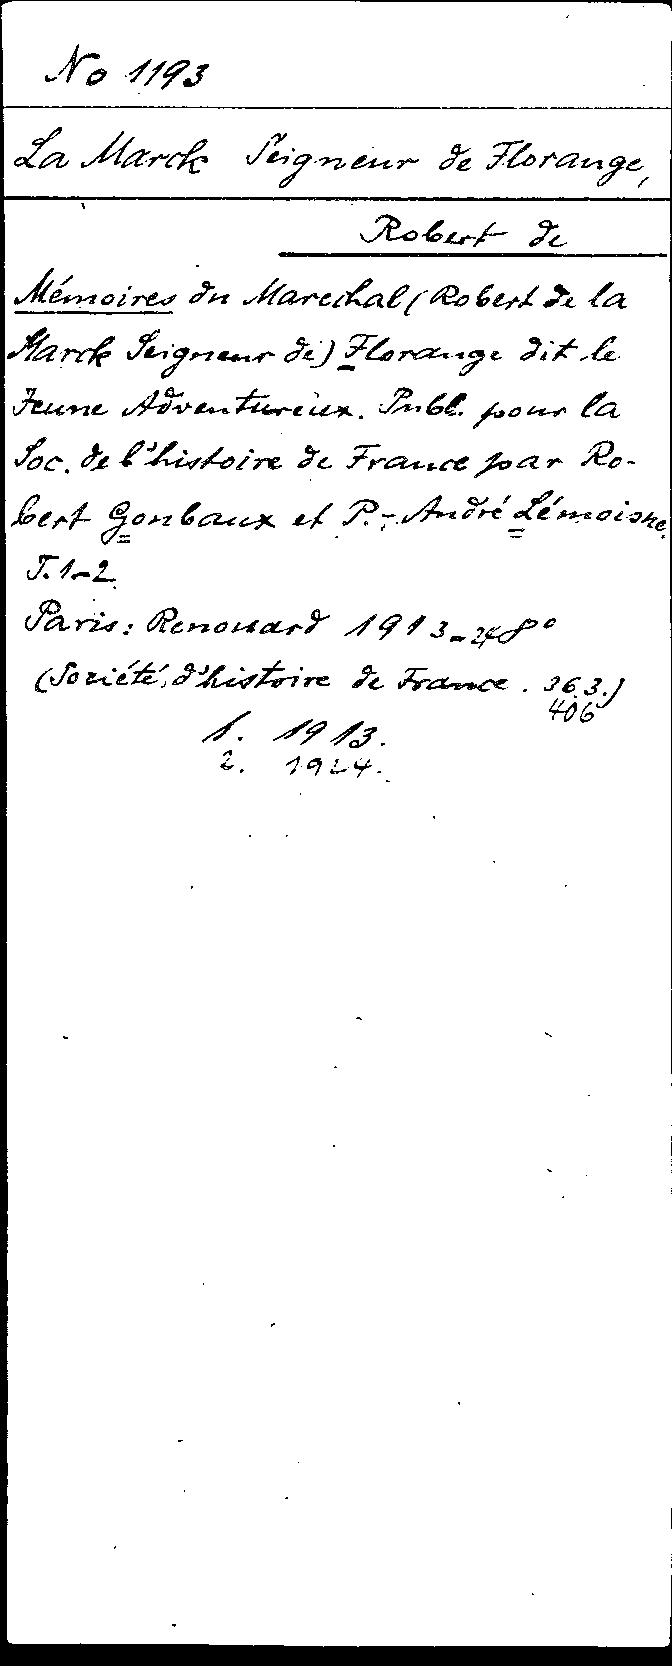 No 1193
La Marck Seigneur de Florange,
Robert de
Mémoires du Marechal (Robert de la
Marck Seigneur de) Florange dit le
Jeune Adventureux. Publ. pour la
Soc. de l'histoire de France par Ro-
bert Goubaux et P.-André Lémoisne.
T. 1-2.
Paris: Renouard 1913-24 8°
(Société, d'histoire de France. 363.)
406
1. 1913.
2. 1924.